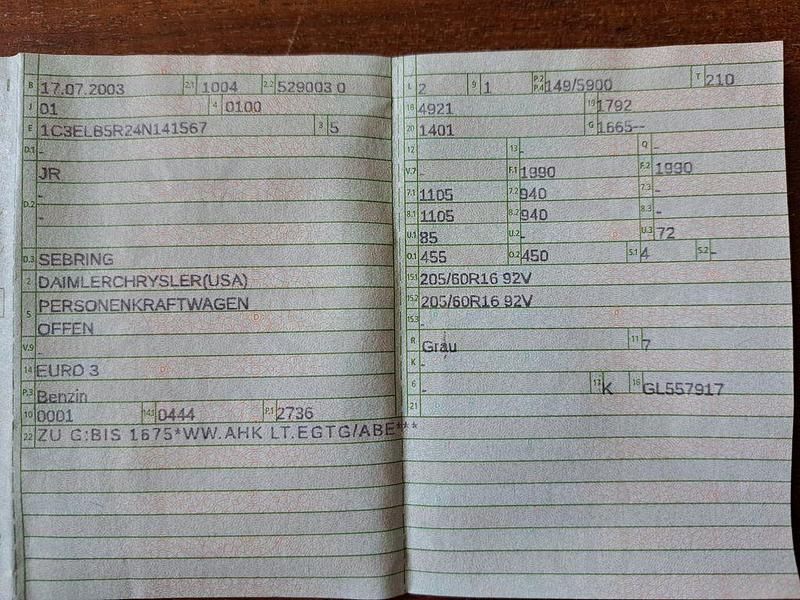 B 17.07.2003 2.1 1004 2.2 529003 0
J 01 4 0100
E 1C3ELB5R24N141567 3 5
D.1 -
JR
D.2 -
-
D.3 SEBRING
2 DAIMLERCHRYSLER(USA)
5 PERSONENKRAFTWAGEN
OFFEN
V.9 -
14 EURO 3
P.3 Benzin
10 0001 14.1 0444 P.1 2736
22 ZU G:BIS 1675*WW.AHK LT.EGTG/ABE***
L 2 9 1 P.2 P.4 149/5900 T 210
18 4921 19 1792
20 1401 G 1665--
12 - 13 - Q -
V.7 - F.1 1990 F.2 1990
7.1 1105 7.2 940 7.3 -
8.1 1105 8.2 940 8.3 -
U.1 85 U.2 - U.3 72
O.1 455 O.2 450 S.1 4 S.2 -
15.1 205/60R16 92V
15.2 205/60R16 92V
15.3 -
R Grau 11 7
K -
6 - 17 K 16 GL557917
21